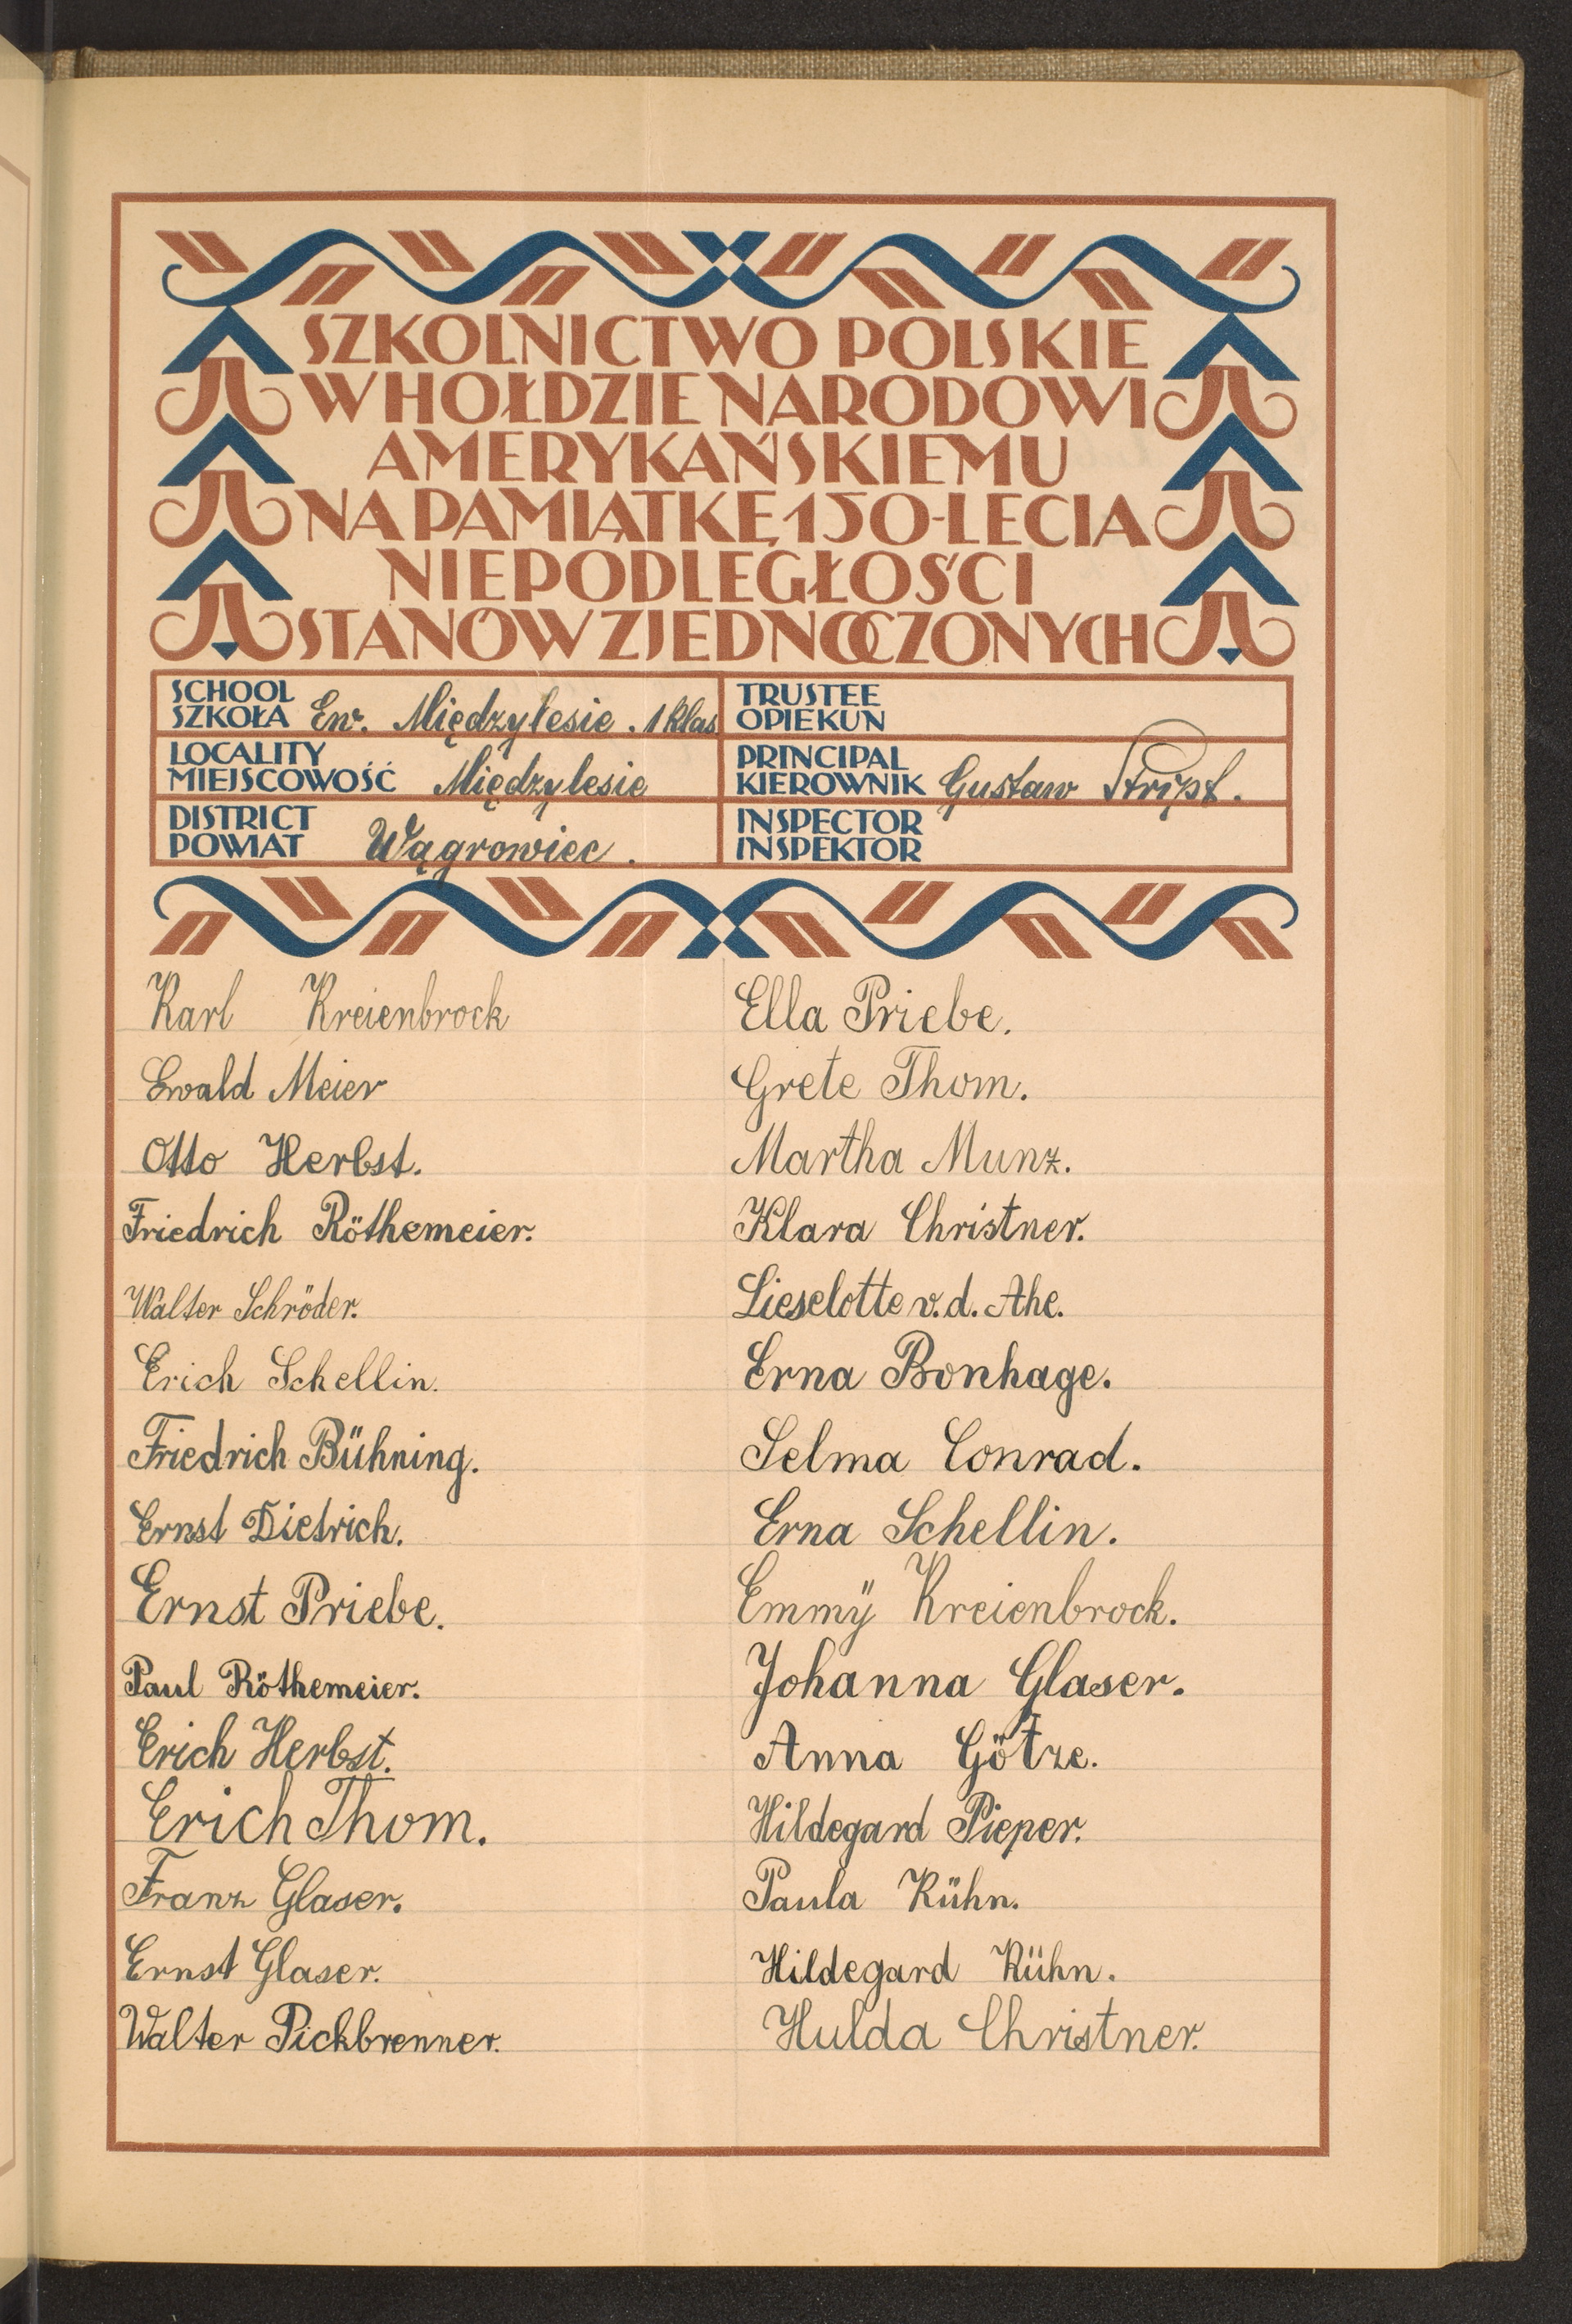 SZKOLNICTWO POLSKIE
W HOŁDZIE NARODOWI
AMERYKAŃSKIEMU
NA PAMIĄTKĘ 150-LECIA
NIEPODLEGŁOŚCI
STANÓW ZJEDNOCZONYCH
SCHOOL
SZKOŁA Ew. Międzylesie. 1 klas
TRUSTEE
OPIEKUN
LOCALITY
MIEJSCOWOŚĆ Międzylesie
PRINCIPAL
KIEROWNIK Gustaw
DISTRICT
POWIAT Wągrowiec.
INSPECTOR
INSPEKTOR
Karl Kreienbrock
Ewald Meier
Otto Herbst.
Friedrich Röthemeier.
Walter Schröder.
Erich Schellin.
Friedrich Bühning.
Ernst Dietrich.
Ernst Priebe.
Paul Röthemeier.
Erich Herbst.
Erich Thom.
Franz Glaser.
Ernst Glaser.
Walter Pickbrenner.
Ella Priebe.
Grete Thom.
Martha Munz.
Klara Christner.
Lieselotte v.d. Ahe.
Erna Bonhage.
Selma Conrad.
Erna Schellin.
Emmÿ Kreienbrock.
Johanna Glaser.
Anna Götze.
Hildegard Pieper.
Paula Kühn.
Hildegard Kühn.
Hulda Christner.